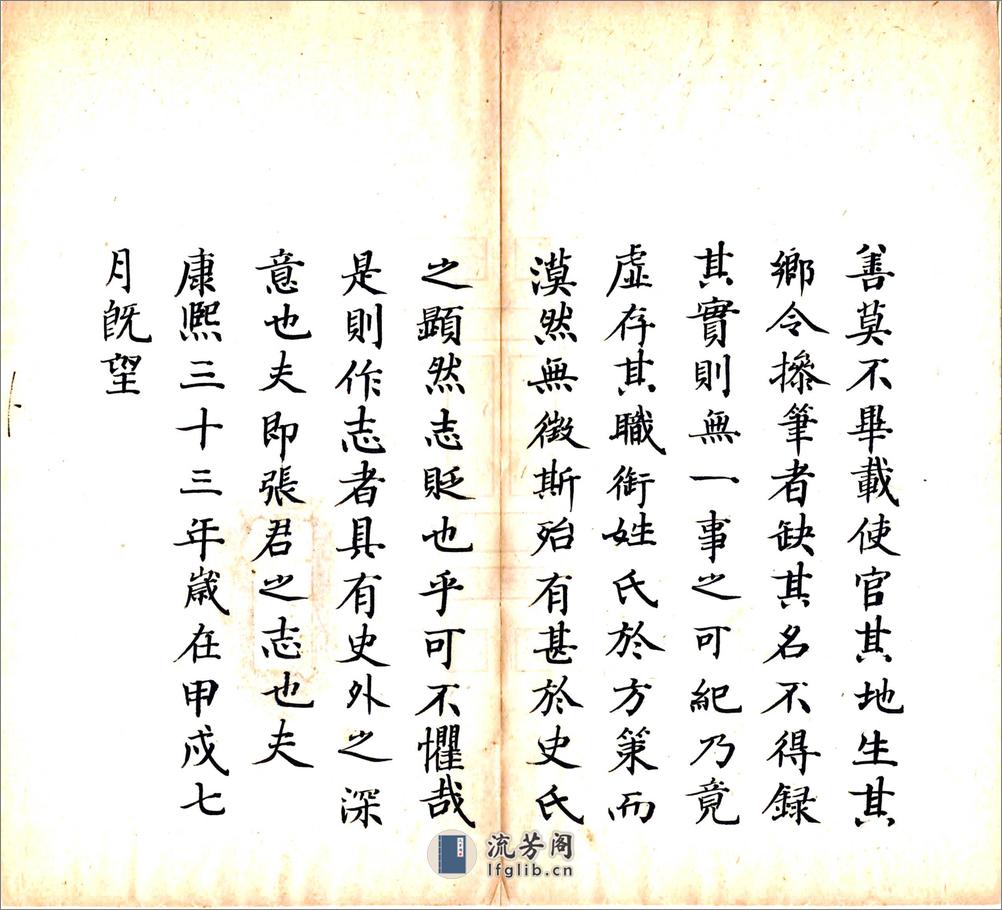 善莫不畢載使官其地生其
鄉令操筆者缺其名不得録
其實則無一事之可紀乃竟
虛存其職銜姓氏於方策而
漠然無徵斯殆有甚於史氏
之顯然志貶也乎可不懼哉
是則作志者具有史外之深
意也夫即張君之志也夫
康熙三十三年歲在甲戌七
月旣望
流芳阁
lfglib.cn